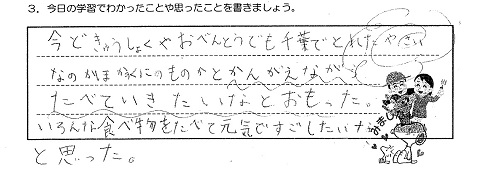 3. 今日の学習でわかったことや思ったことを書きましょう。
今どきゅうしょくやおべんとうでも千葉でとれたやさい
なのかまがくにのものかとかんがえながら
たべていきたいなとおもった。
いろんな食べ物をたべて元気ですごしたいなぁ
と思った。